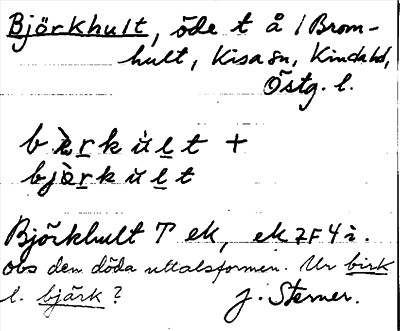 Björkhult, öde t å / Brom-
hult, Kisa sn, Kinda hd,
Östg. l.
b è r k ù l t +
b j ö̀ r k ù l t
Björkhult T ek, ek 7F4i.
Obs den döda uttalsformen. Ur birk
l. bjärk?
J. Sterner.